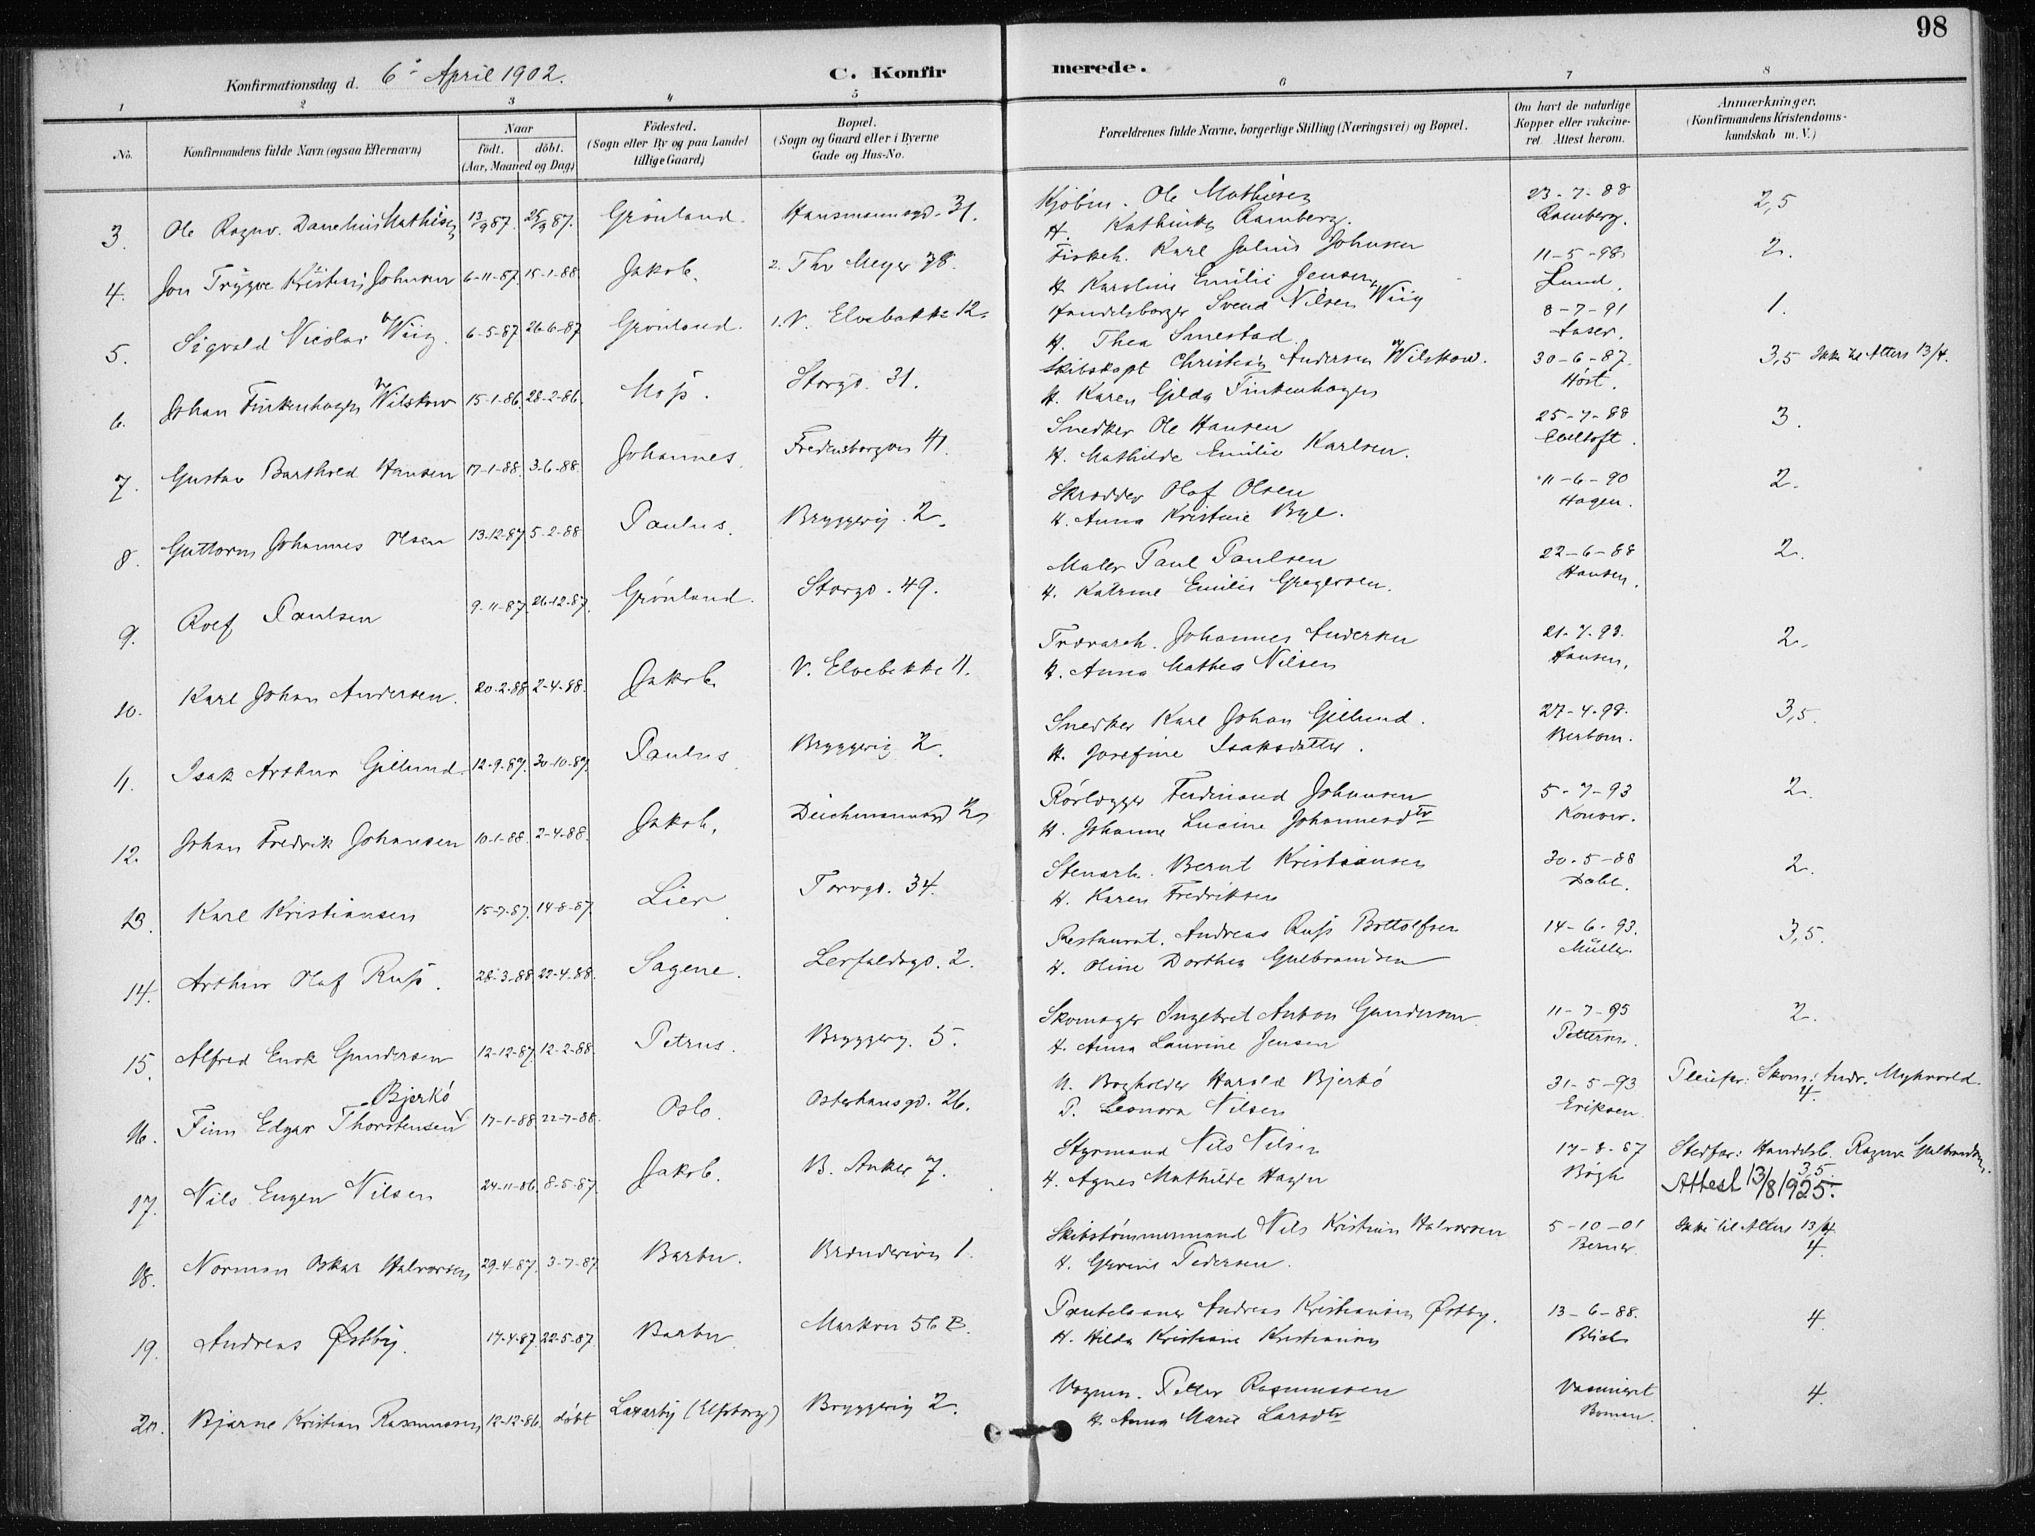 98
Konfirmationsdag d. 6 April 1902.
C. Konfirmerede.
1 2 3 4 5 6 7 8
No.
Konfirmandens fulde Navn (ogsaa Efternavn)
Naar
født. døbt.
(Aar, Maaned og Dag)
Fødested.
(Sogn eller By og paa Landet
tillige Gaard)
Bopæl.
(Sogn og Gaard eller i Byerne
Gade og Hus-No.
Forældrenes fulde Navne, borgerlige Stilling (Næringsvei) og Bopæl.
Om havt de naturlige
Kopper eller vakcine-
ret. Attest herom.
Anmærkninger,
(Konfirmandens Kristendoms-
kundskab m. V.)
3. Ole Ragnv. Danelius Mathisen 13/9 87. 25/9 87. Grönland. Hausmannsgd. 31. Kjöbm. Ole Mathisen 23-7-88 2,5
H. Kathinka Ramberg. Ramberg.
4. Jon Trygve Kristian Johnsen 6-11-87 15-1-88 Jakob. 2. Thv Meyer 78. Fiskeh. Karl Julius Johnsen 11-5-98 2.
H. Karoline Emilie Jensen Lund.
5. Sigvald Nicolai Wiig. 6-5-87 26-6-87 Grönland. 1. V. Elvebakke 12. Handelsborger Svend Nilsen Wiig 8-7-91 1.
H. Thea Smestad. Aaser.
6. Johan Finkenhagen Wilskow 15-1-86. 28-2-86. Moss. Storgd. 31. Skibskapt Christian Andersen Wilskow. 30-6-87. 3,5 Ikke til Alters 13/4.
H. Karen Gilda Finkenhagen Höst.
7. Gustav Barthold Hansen 17-1-88. 3-6-88. Johannes. Fredensborgvn 41. Snedker Ole Hansen 25-7-88 3.
H. Mathilde Emilie Karlsen. Ebeltoft.
8. Guttorm Johannes Olsen 13-12-87 5-2-88 Paulus. Bryggerig. 2. Skrædder Olaf Olsen 11-6-90 2.
H. Anna Kristine Bye. Hagen.
9. Rolf Paulsen 9-11-87. 26-12-87. Grönland. Storgd. 49. Maler Paul Paulsen 22-6-88 2.
H. Katrine Emilie Gregersen. Hansen.
10. Karl Johan Andersen. 20-2-88 2-4-88. Jakob. V. Elvebakke 11. Trævarh. Johannes Andersen 21-7-93. 2.
H. Anna Mathea Nilsen Hansen.
11. Isak Arthur Gillund. 12-9-87. 30-10-87. Paulus. Bryggerig 2. Snedker Karl Johan Gillund. 27-4-99. 3,5.
H. Josefine Isaksdatter. Berbom.
12. Johan Fredrik Johansen 10-1-88. 2-4-88. Jakob. Deichmannsgd Rörlægger Ferdinand Johansen 5-7-93 2.
H. Johanne Lucine Johannesdtr Konow.
13. Karl Kristiansen 15-7-87. 14-8-87. Lier Torvgd. 34. Stenarb. Bernt Kristiansen 30-5-88 2.
H. Karen Fredriksen Dahl.
14. Arthur Olaf Russ. 28-3-88 22-4-88. Sagene. Lerfaldsgd. 2. Restaurat. Andreas Russ Bottolfsen 14-6-93. 3,5.
H. Oline Dorthea Gulbrandsen Müller.
15. Alfred Enok Gundersen 12-12-87. 12-2-88. Petrus. Bryggerg. 5. Skomager Ingebret Anton Gundersen 11-7-95 2.
H. Anna Laurine Jensen Pettersen.
16. Finn Edgar Thorstensen Bjerkö 17-1-88 22-7-88. Oslo. Osterhausgd. 26. U. Bogholder Harald Bjerkö 31-5-93 Pleiefar: Skom: Andr. Mykvold.
P. Leonora Nilsen Eriksen 4.
17. Nils Eugen Nilsen 24-11-86. 8-5-87. Jakob. B. Anker 7. Styrmand Nils Nilsen 17-8-87 Stedfar: Handelsb. Ragnv. Gulbrandsen. 3,5
H. Agnes Mathilde Hagen Bögh Attest 13/8 1925.
18. Norman Oskar Halvorsen 29-4-87. 3-7-87 Barbu. Brænderivn 1. Skibstömmermand Nils Kristian Halvorsen 5-10-01 Ikke til Alters 13/4
H. Gurine Pedersen. Berner. 4
19. Andreas Østby. 17-4-87. 22-5-87. Barbu Markvn 56 B. Pantelaaner Andreas Kristiansen Østby. 13-6-88. 4
H. Hilda Kristiane Kristiansen Blich
20. Bjarne Kristian Rasmussen 12-12-86. döbt Laxarby (Elfsborg) Bryggerig 2. Vognm. Petter Rasmussen Vaccineret 4.
H. Anna Marie Larsdtr Boman.